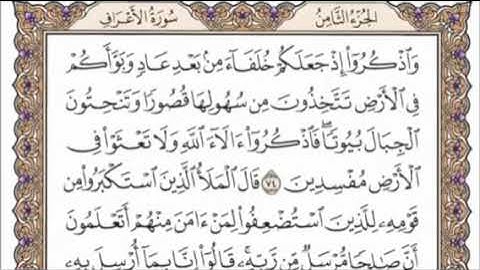 الجزء الثامن سورة الأعراف
وَٱذْكُرُوٓا۟ إِذْ جَعَلَكُمْ خُلَفَآءَ مِنۢ بَعْدِ عَادٍ وَبَوَّأَكُمْ
فِى ٱلْأَرْضِ تَتَّخِذُونَ مِن سُهُولِهَا قُصُورًا وَتَنْحِتُونَ
ٱلْجِبَالَ بُيُوتًا ۖ فَٱذْكُرُوٓا۟ ءَالَآءَ ٱللَّهِ وَلَا تَعْثَوْا۟ فِى
ٱلْأَرْضِ مُفْسِدِينَ ٧٤ قَالَ ٱلْمَلَأُ ٱلَّذِينَ ٱسْتَكْبَرُوا۟ مِن
قَوْمِهِۦ لِلَّذِينَ ٱسْتُضْعِفُوا۟ لِمَنْ ءَامَنَ مِنْهُمْ أَتَعْلَمُونَ
أَنَّ صَـٰلِحًا مُّرْسَلٌ مِّن رَّبِّهِۦ ۚ قَالُوٓا۟ إِنَّا بِمَآ أُرْسِلَ بِهِۦ